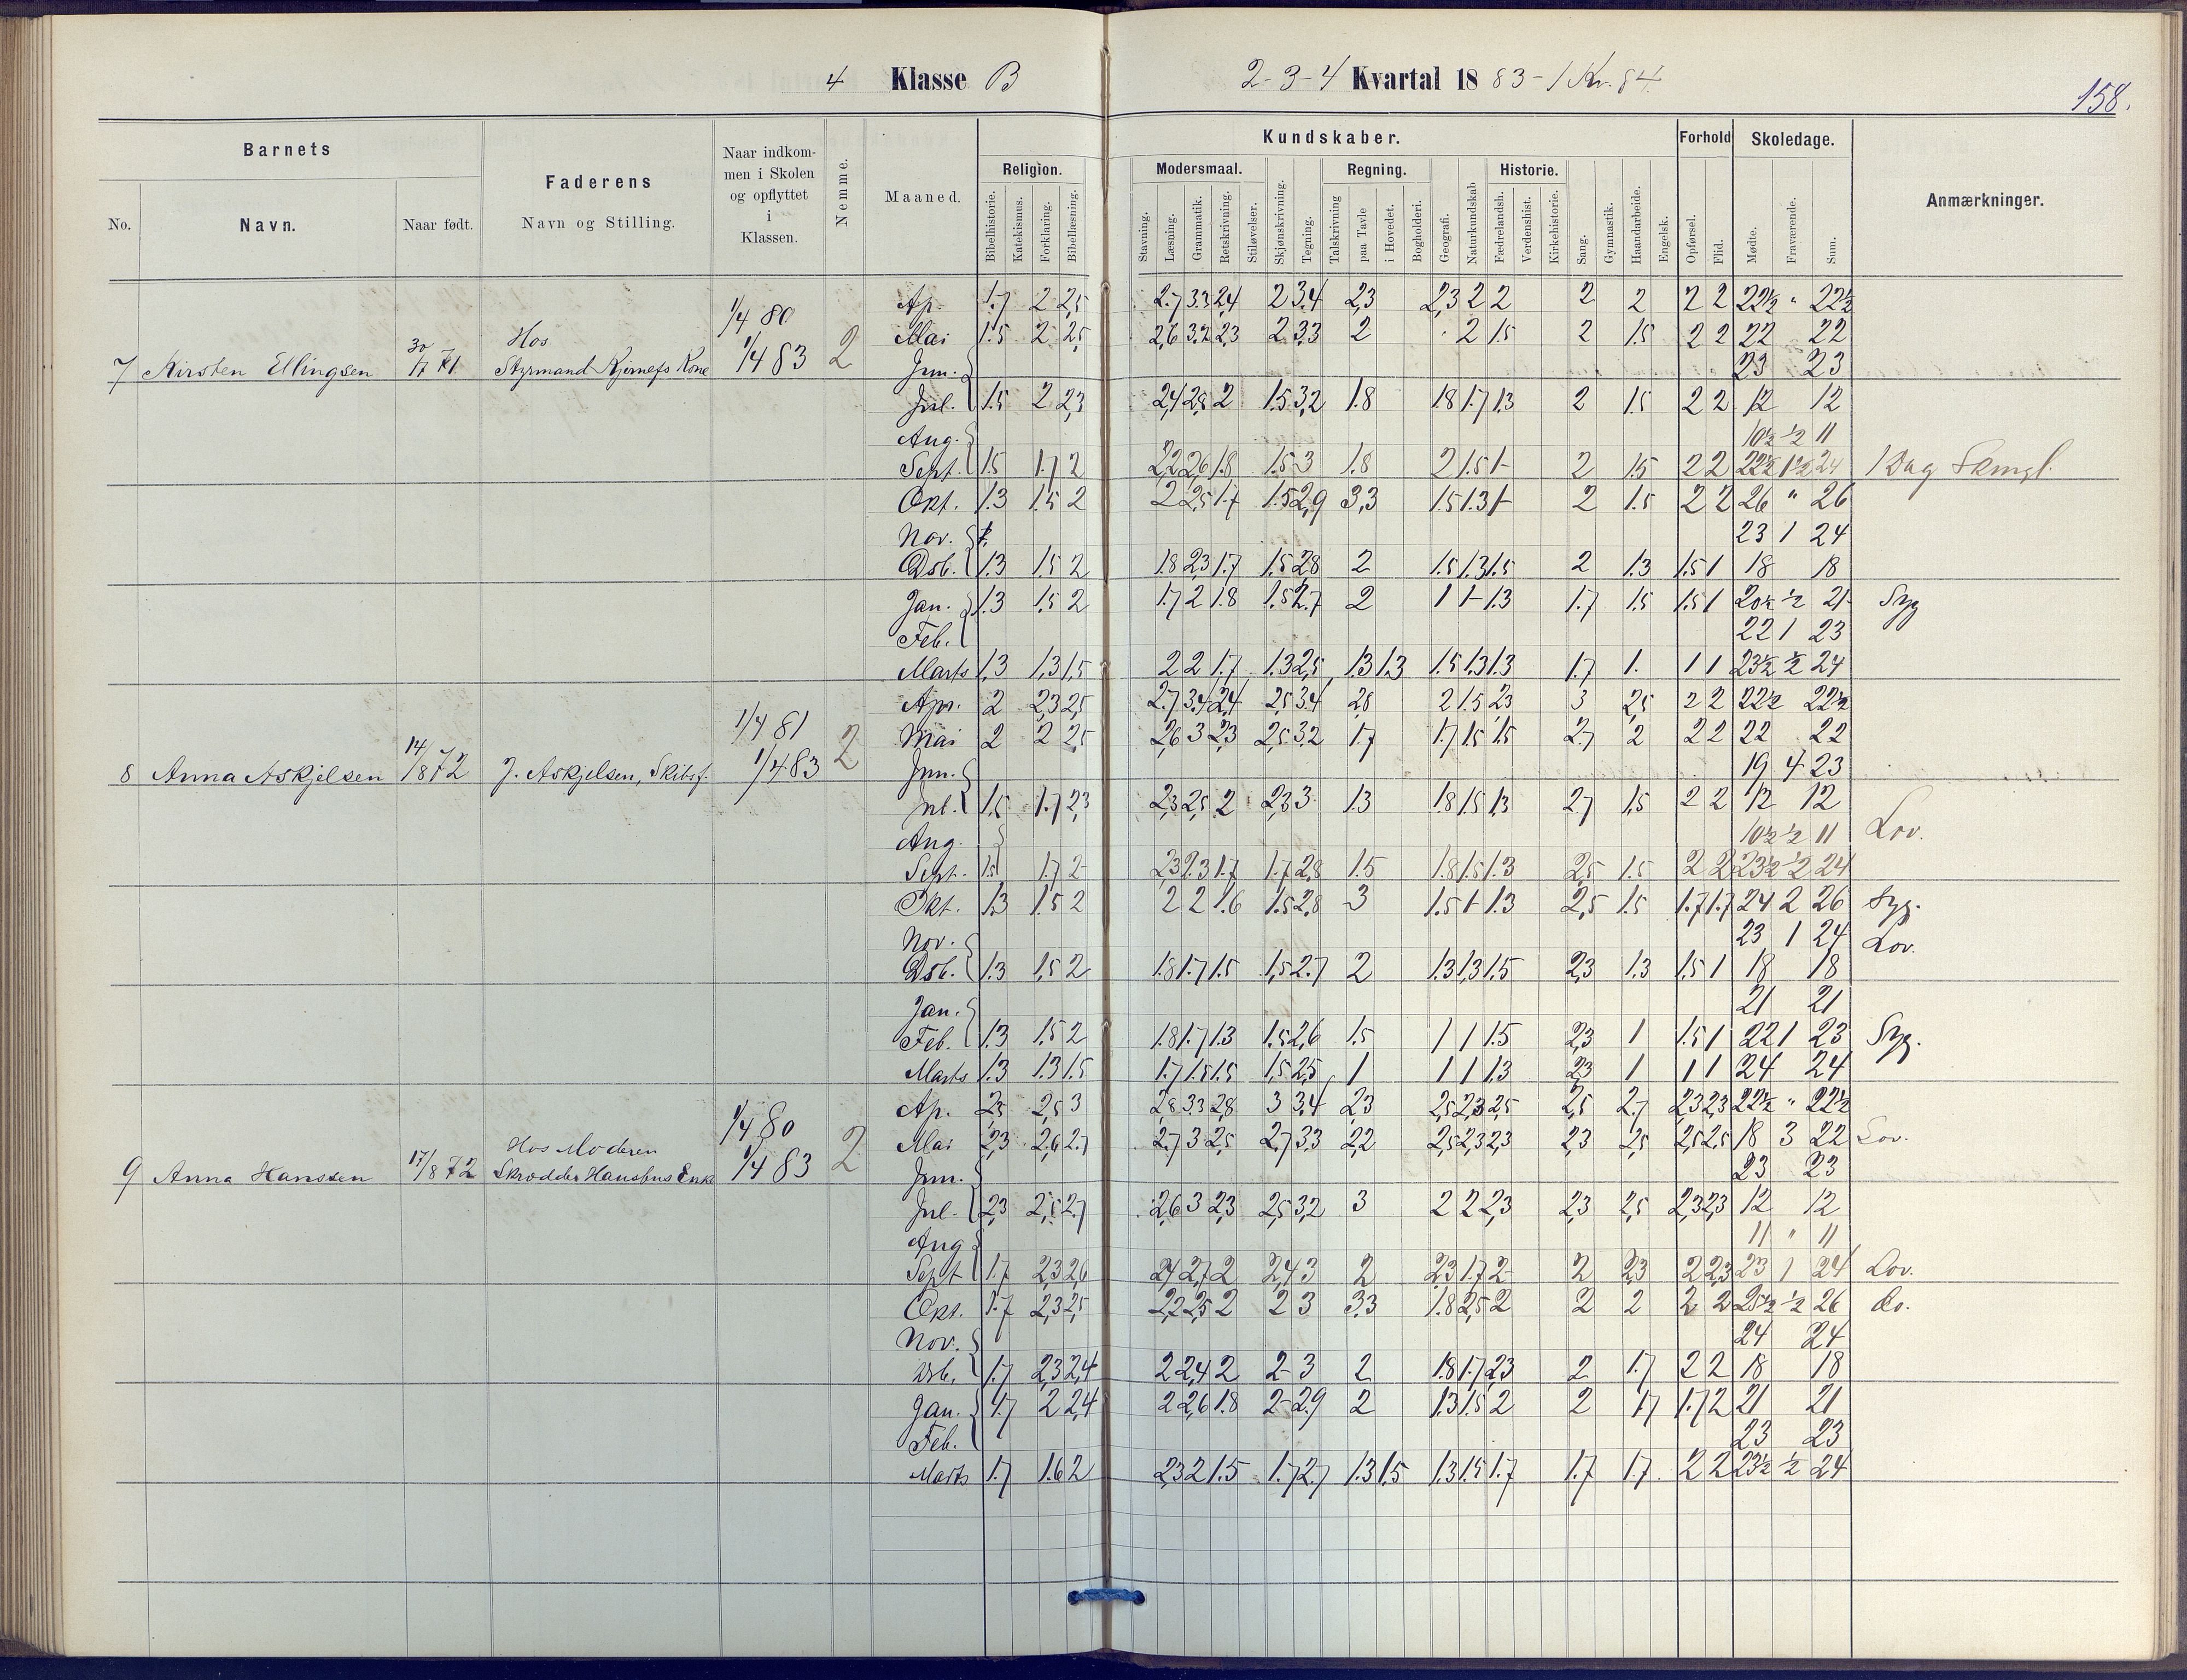 4 Klasse B
2-3-4 Kvartal 1883-1 Kv. 84
158.
Barnets
Faderens
Naar indkommen i Skolen og opflyttet i Klassen.
Nemme.
Maaned.
Kundskaber.
Forhold
Skoledage.
Anmærkninger.
No.
Navn.
Naar født.
Navn og Stilling.
Religion.
Modersmaal.
Regning.
Historie.
Bibelhistorie.
Katekismus.
Forklaring.
Bibellæsning.
Stavning.
Læsning.
Grammatik.
Retskrivning.
Stiløvelser.
Skjønskrivning.
Tegning.
Talskrivning
paa Tavle
i Hovedet.
Bogholderi.
Geografi.
Naturkundskab
Fædrelandsh.
Verdenshist.
Kirkehistorie.
Sang.
Gymnastik.
Haandarbeide.
Engelsk.
Opførsel.
Flid.
Mødte.
Fraværende.
Sum.
7 Kirsten Ellingsen 71 Hos Styrmand Kone 1/4 80 1/4 83 2
Ap. 1.7 2 2,5 2.7 3.3 2,4 2 3.4 2,3 2,3 2 2 2 2 2 2 22½ " 22½
Mai 1.5 2 2,5 2,6 3.2 2,3 2 3,3 2 2 1.5 2 1.5 2 2 22 22
Jun. 23 23
Jul. 1.5 2 2,3 2,4 2,8 2 1.5 3,2 1.8 1.8 1.7 1.3 2 1.5 2 2 12 12
Aug. 10½ ½ 11
Sept. 1.5 1.7 2 2,2 2,6 1.8 1.5 3 1.8 2 1.5 1 2 1.5 2 2 22½ 1½ 24 1 Dag
Okt. 1.3 1.5 2 2 2,5 1.7 1.5 2,9 3,3 1.5 1.3 1 2 1.5 2 2 26 " 26
Nov. 23 1 24
Dsb. 1.3 1.5 2 1.8 2,3 1.7 1.5 2,8 2 1.5 1.3 1.5 2 1.3 1.5 1 18 18
Jan. 1.3 1.5 2 1.7 2 1.8 1.5 2.7 2 1 1 1.3 1.7 1.5 1.5 1 20½ ½ 21 Syg
Feb. 22 1 23
Marts 1.3 1.3 1.5 2 2 1.7 1.3 2,5 1.3 1.3 1.5 1.3 1.3 1.7 1. 1 1 23½ ½ 24
8 Anna Askjelsen 14/8 72 J. Askjelsen, Skibsf. 1/4 81 1/4 83 2
Apr. 2 2,3 2,5 2.7 3.4 2,4 2,5 3.4 2,8 2 1.5 2,3 3 2,5 2 2 22½ 22½
Mai 2 2 2,5 2,6 3 2,3 2,5 3,2 1.7 1.7 1.5 1.5 2.7 2 2 2 22 22
Jun. 19 4 23
Jul. 1.5 1.7 2,3 2,3 2,5 2 2,3 3 1.3 1.8 1.5 1.3 2.7 1.5 2 2 12 12
Aug. 10½ ½ 11 Lov.
Sept. 1.5 1.7 2 2,3 2.3 1.7 1.7 2,8 1.5 1.8 1.5 1.3 2,5 1.5 2 2 23½ ½ 24
Okt. 1.3 1.5 2 2 2 1.6 1.5 2,8 3 1.5 1 1.3 2,5 1.5 1.7 1.7 24 2 26 Syg.
Nov. 23 1 24 Lov.
Dsb. 1.3 1.5 2 1.8 1.7 1.5 1,5 2.7 2 1.3 1.3 1.5 2,3 1.3 1.5 1 18 18
Jan. 21 21
Feb. 1.3 1.5 2 1.8 1.7 1.3 1.5 2,6 1.5 1 1 1.5 2,3 1 1.5 1 22 1 23 Syg.
Marts 1.3 1.3 1.5 1.7 1.5 1.5 1.5 2,5 1 1 1 1.3 2,3 1 1 1 24 24
9 Anna Hanssen 17/8 72 Hos Moderen Enke 1/4 80 1/4 83 2
Ap. 2,5 2,5 3 2,8 3.3 2,8 3 3,4 2,3 2,5 2,3 2,5 2,5 2.7 2,3 2,3 22½ " 22½
Mai 2,3 2,6 2.7 2.7 3 2,5 2.7 3.3 2,2 2,5 2,3 2,3 2,3 2,5 2,5 2,5 18 3 22 Lov.
Jun. 23 23
Jul. 2,3 2,5 2.7 2,6 3 2,3 2,5 3,2 3 2 2 2,3 2,3 2,5 2,3 2,3 12 12
Aug 11 " 11
Sept 1.7 2,3 2,6 2,4 2,7 2 2,4 3 2 2,3 1.7 2 2 2,3 2 2,3 23 1 24 Lov.
Okt. 1.7 2,3 2,5 2,2 2,5 2 2 3 3,3 1.8 2,5 2 2 2 2 2 25½ ½ 26
Nov. 24 24
Dsb. 1.7 2,3 2,4 2 2,4 2 2 3 2 1.8 1.7 2,3 2 1.7 2 2 18 18
Jan. 1.7 2 2,4 2 2,6 1.8 2 2.9 2 1.3 1.5 2 2 1.7 1.7 2 21 21
Feb. 23 23
Marts 1.7 1.6 2 2,3 2 1.5 1.7 2.7 1.3 1.5 1.3 1.5 1.7 1.7 1.7 2 2 23½ ½ 24